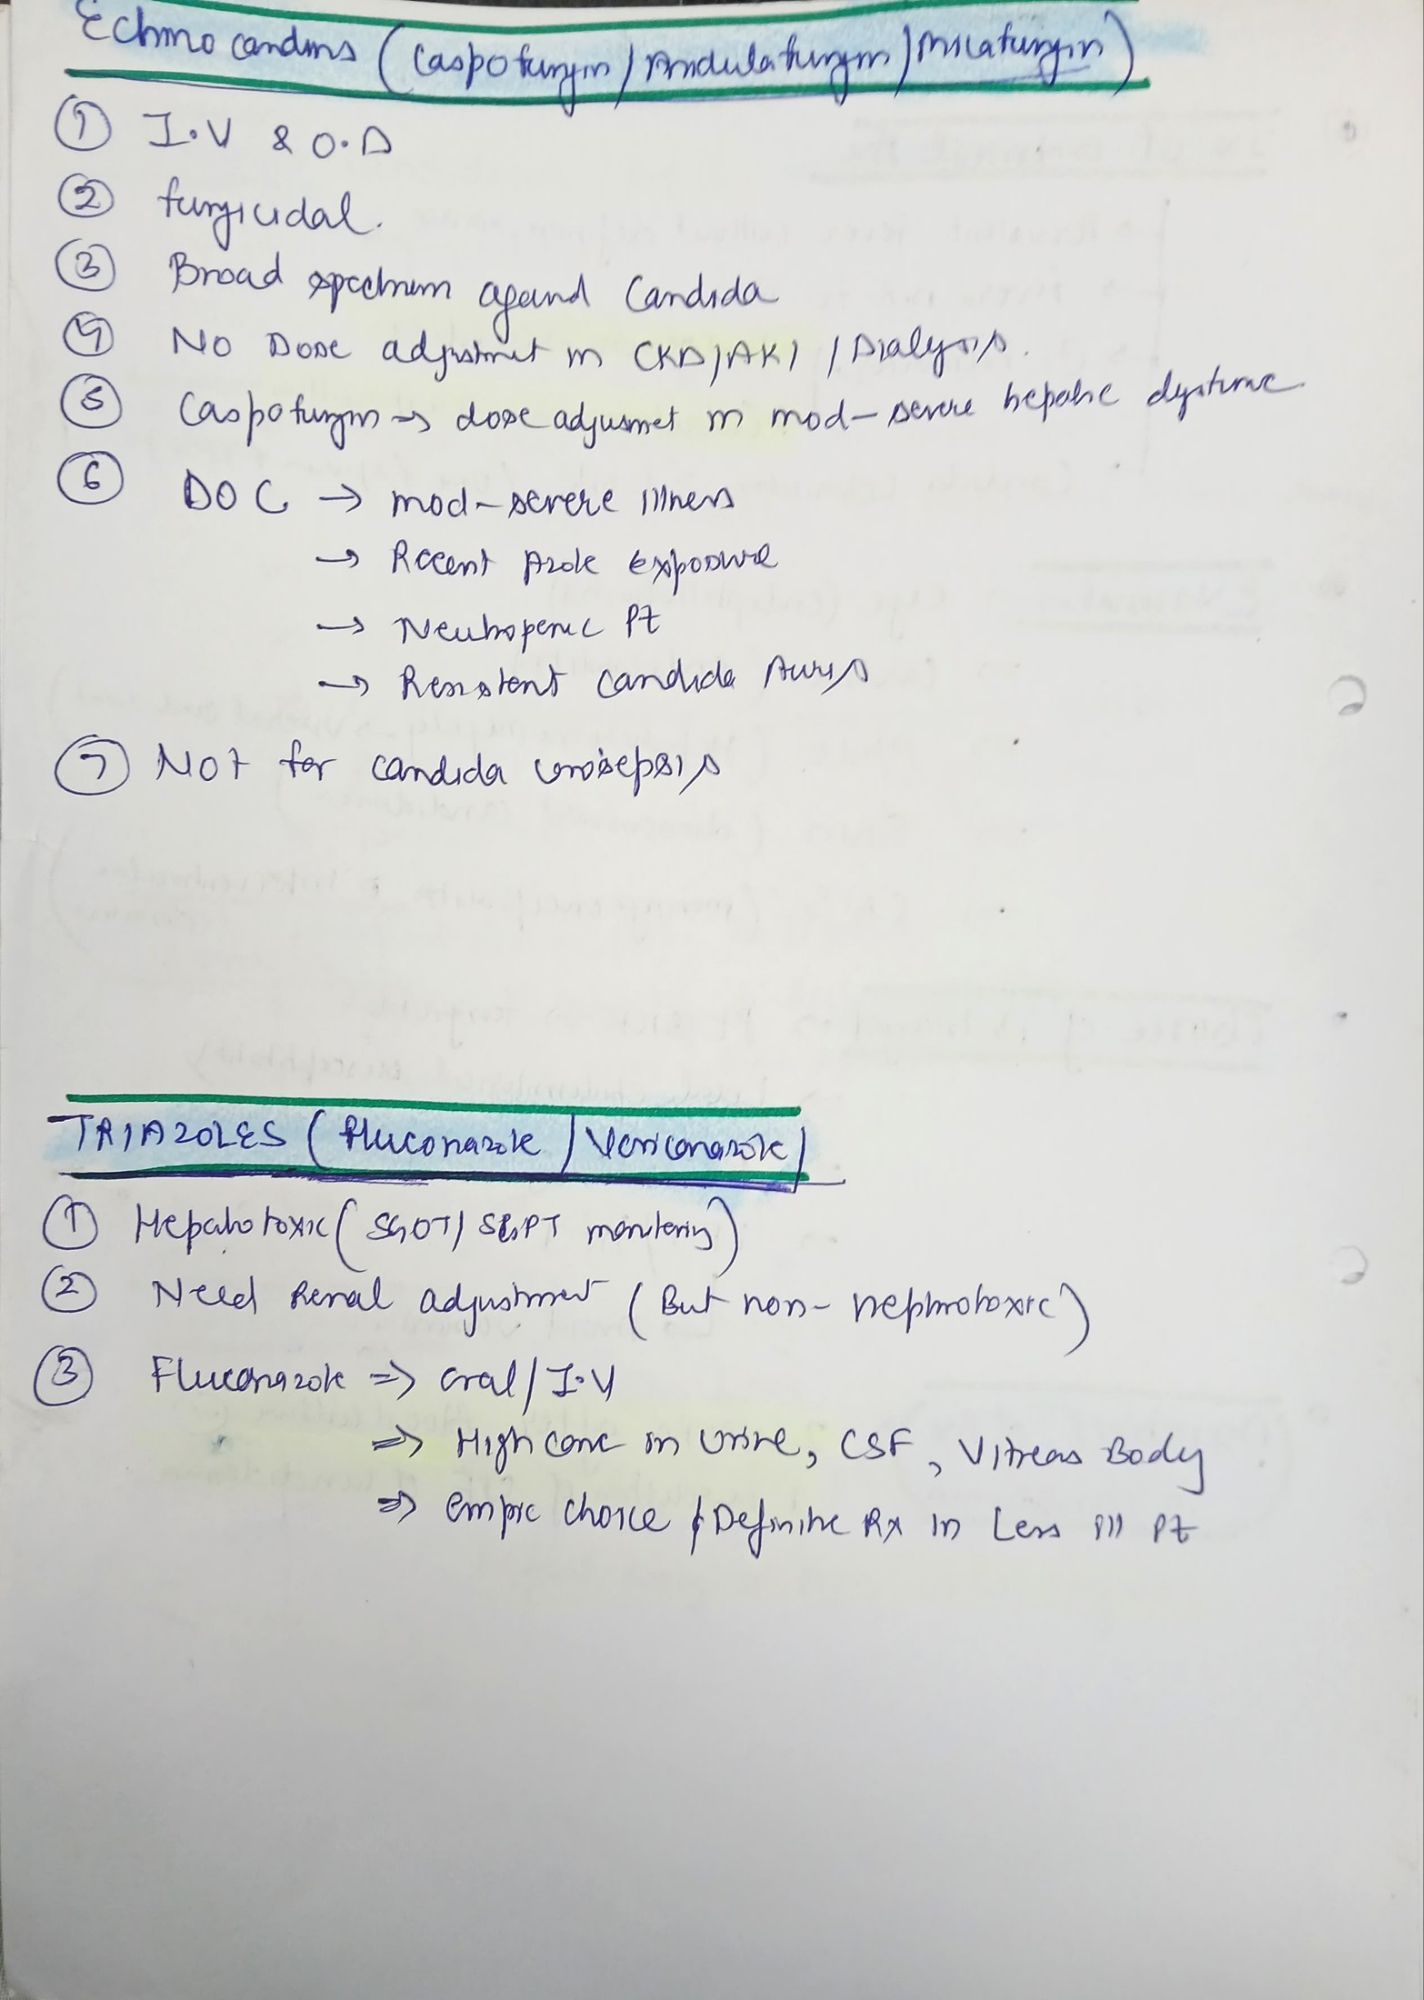 Echinocandins (Caspofungin / Anidulafungin / Micafungin)
① I.V & O.D
② fungicidal.
③ Broad spectrum against Candida
④ No Dose adjustment in CKD/AKI / Dialysis.
⑤ Caspofungin → dose adjusmet in mod-severe hepatic
⑥ DOC → mod-severe illness
→ Recent Azole Exposure
→ Neutropenic Pt
→ Resistent candida Auris
⑦ Not for candida urosepsis
TRIAZOLES (fluconazole / Voriconazole)
① Hepatotoxic (SGOT/ SGPT monitering)
② Need Renal adjustment (But non-nephrotoxic)
③ Fluconazole ⇒ oral / I.V
⇒ High conc in urine, CSF, Vitreas Body
⇒ empiric choice / Definite Rx in Less ill Pt